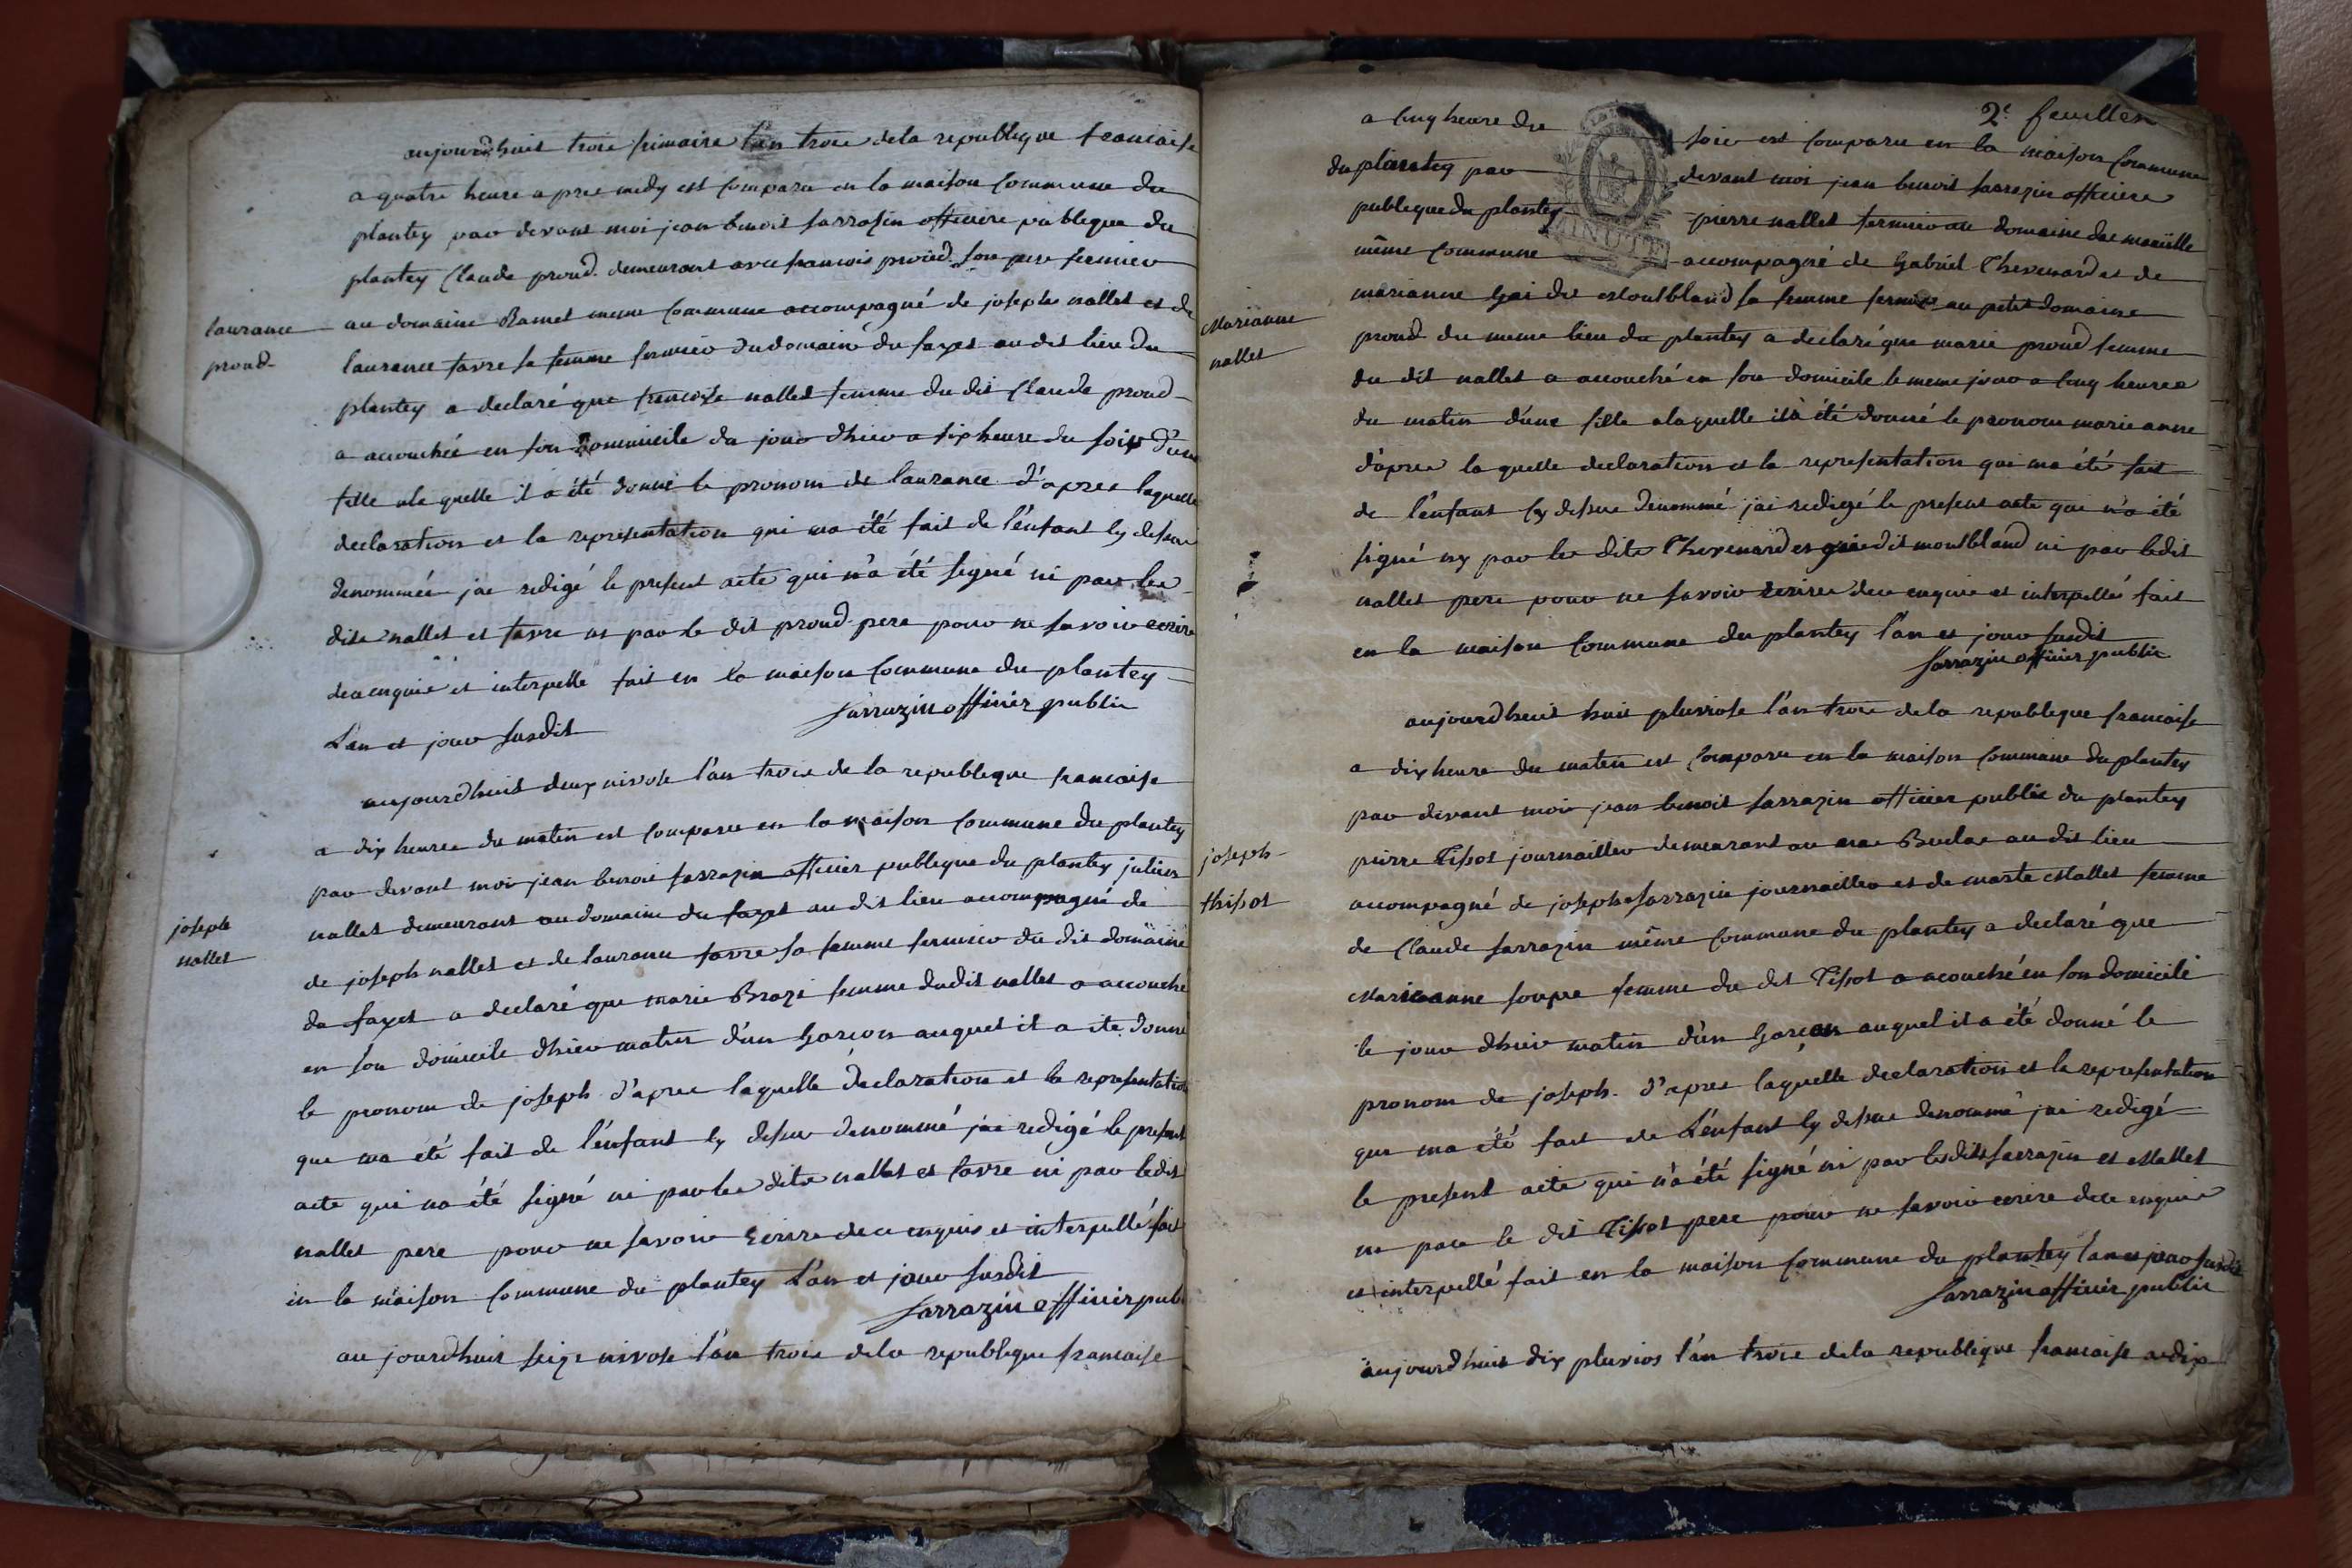 aujourdhuit troie frimaire l'an troie dela republique francaise
a quatre heure apree midy est comparu en la maison commune du
plantey par devant moi jean benoit sarrasin officiere publique du
plantey claude proud demeurant avec francois proud son pere fermier
au domaine Ramet meme commune accompagné de joseph nallet et de
laurance
proud
laurance favre sa femme fermier du domaine du fayet au dit lieu du
plantey a declaré que francoise nallet femme du dit claude proud
a accouchée en son dommicile du jour dhier a six heure du soir d'une
fille ala quelle il a été donné le pronom de laurance d'apres laquelle
declaration et la representation qui ma été fait de l'enfant cy dessue
denommée jai redigé le present acte qui n'a été signé ni par les
dite nallet et favre ni par le dit proud pere pour ne savoir ecrire
de ce enquie et interpellé fait en la maison commune du plantey
L'an et jour susdit
sarrazin officier public
aujourdhuit deux nivose l'an troie de la republique francaise
a dix heuree du matin est comparu en la maison commune du plantey
par devant moi jean benoit sarrazin officier publique du plantey julien
nallet demeurant au domaine du fayet au dit lieu accompagné de
joseph
nallet
de joseph nallet et de laurance favre sa femme fermier du dit domaine
du fayet a declaré que marie Brazi femme dudit nallet a accouché
en son domicile dhier matin d'un garcon auquel il a ete donné
le pronom de joseph d'apree laquelle declaration et la representation
que ma été fait de l'enfant cy dessue denommé jai redigé le present
acte qui na été signé ni par lee dite nallet et favre ni par ledit
nallet pere pour ne savoir ecrire de ce enquis et interpellé fait
en la maison commune du plantey l'an et jour susdit
sarrazin officier pub
aujourdhuit seize nivose l'an troie dela republique francaise
2e feuillet
a cinq heure du soir est comparu en la maison commune
du plantey par devant moi jean benoit sarrazin officiere
publique du plantey pierre nallet fermier au domaine du
même commune accompagné de gabriel thevenard et de
MINUTE
marianne gai dit montbland sa femme fermier au petit domaine
Marianne
nallet
proud du meme lieu du plantey a declaré que marie proud femme
du dit nallet a accouché en son domicile le meme jour a cinq heuree
du matin d'une fille alaquelle il à été donné le pronom marie anne
d'apree laquelle declaration et la representation qui ma été fait
de l'enfant cy dessue denommé jai redigé le present acte qui n'a été
signé ny par lee dite thevenard et gai dit montbland ni par ledit
nallet pere pour ne savoir ecriree de ce enquie et interpellé fait
en la maison commune du plantey l'an et jour susdit
sarrazin officier public
aujourdhuit huit pluviose l'an troie dela republique francaise
a dix heure du matin est comparu en la maison commune du plantey
par devant moi jean benoit sarrazin officier public du plantey
joseph
thisot
pierre Tisot journaillier demeurant au au dit lieu
accompagné de joseph sarrazin journaillier et de marte Mallet femme
de claude sarrazin même commune du plantey a declaré que
Marieanne soupe femme du dit Tisot a acouché en son domicile
le jour dhier matin d'un garcon auquel il a été donné le
pronom de joseph. d'apres laquelle declaration et la representation
que ma été fait de L'enfant cy dessue denommé jai redigé
le present acte qui n'a été signé ni par lesdits sarrazin et Mallet
ni par le dit Tisot pere pour ne savoir ecrire de ce enquie
et interpellé fait en la maison commune du plantey l'an et jour susdit
sarrazin officier public
aujourdhuit dix pluvios l'an troie dela republique francaise a dix